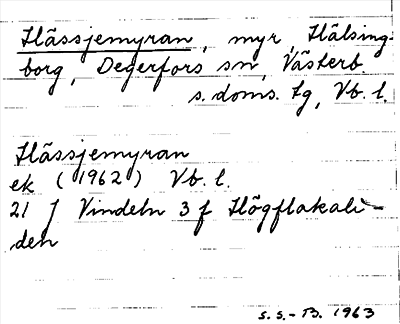 Hässjemyran, myr, Hälsing-
borg, Degerfors sn, Västerb.
s. doms. tg, Vb. l.
Hässjemyran
ek (1962) Vb. l.
21 J Vindeln 3 f Högflakali-
den
s.s.-B. 1963